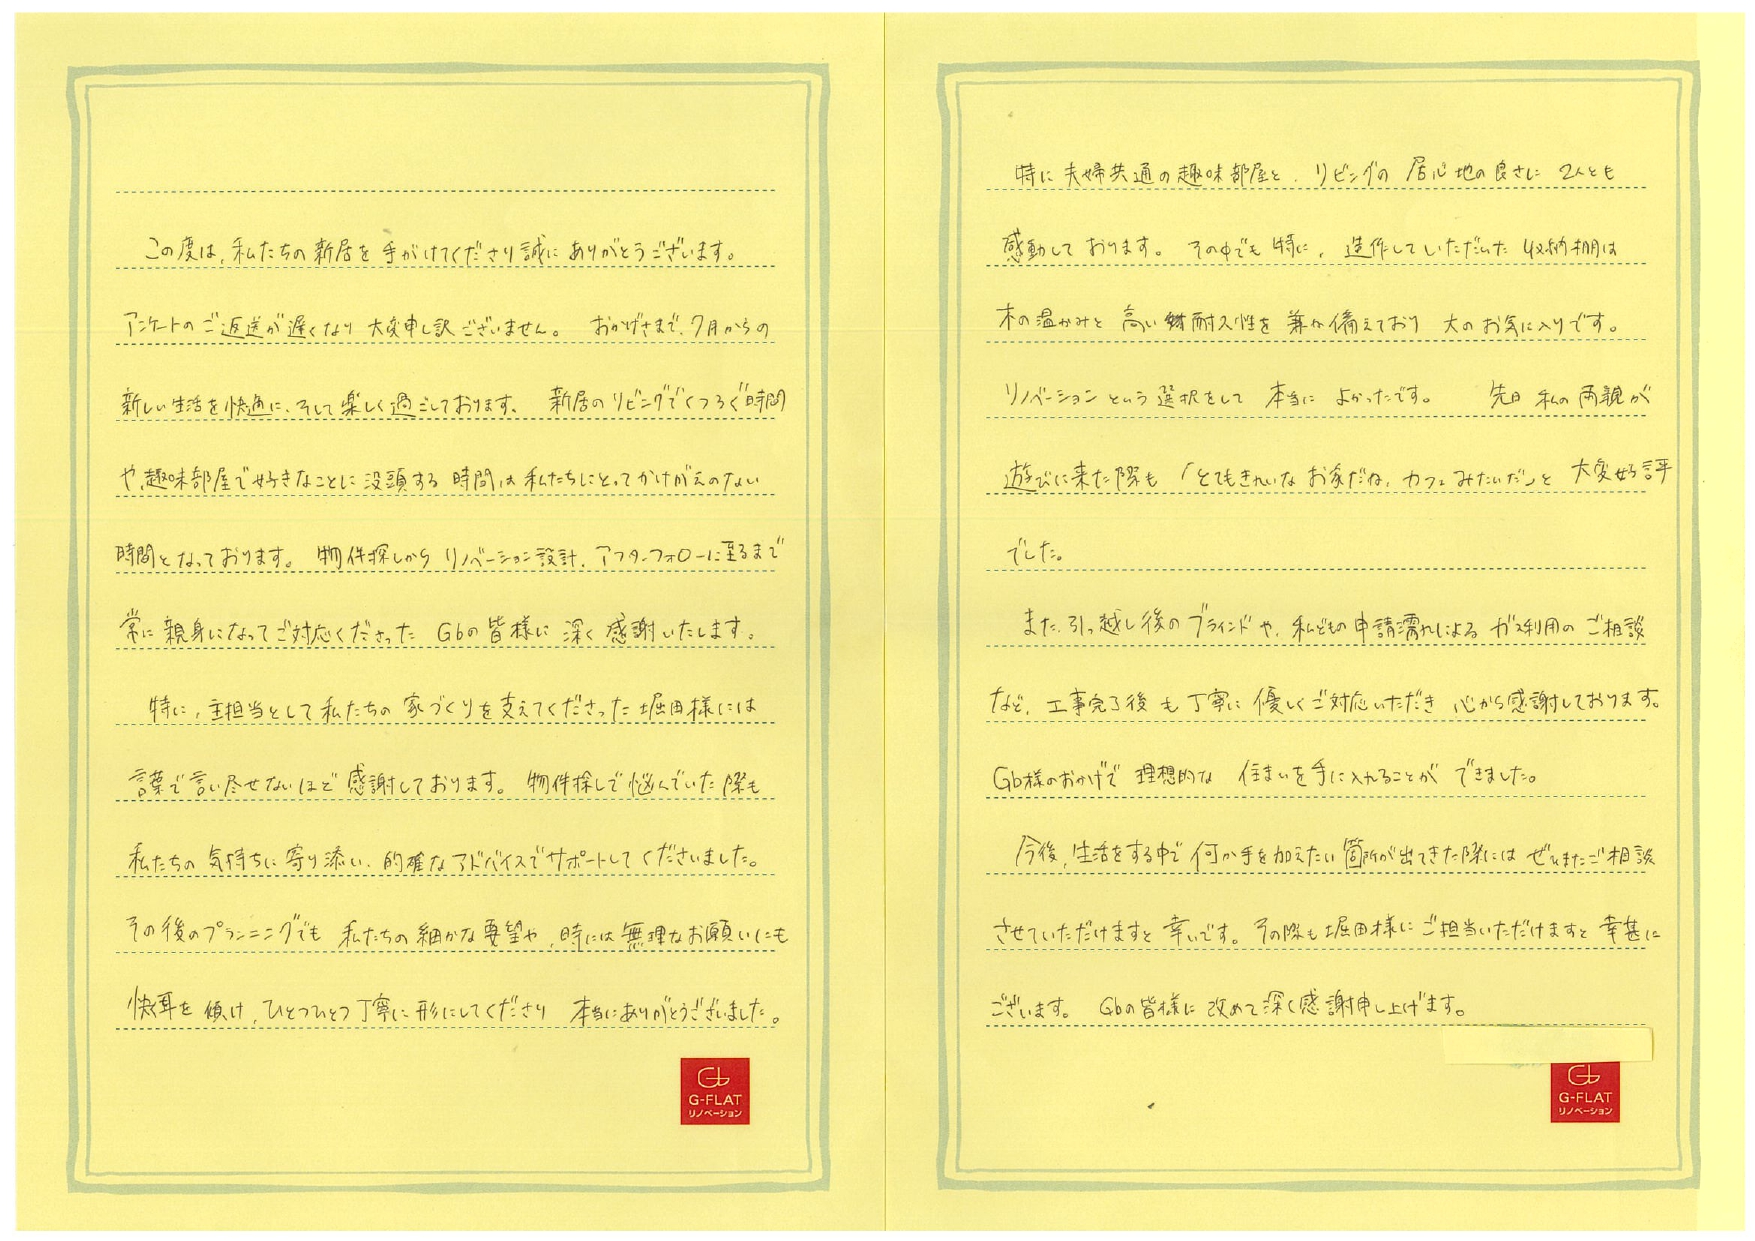 この度は、私たちの新居を手がけてくださり誠にありがとうございます。
アンケートのご返送が遅くなり大変申し訳ございません。おかげさまで、7月からの
新しい生活を快適に、そして楽しく過ごしております。新居のリビングでくつろぐ時間
や、趣味部屋で好きなことに没頭する時間は私たちにとってかけがえのない
時間となっております。物件探しからリノベーション設計、アフターフォローに至るまで
常に親身になってご対応くださったGbの皆様に深く感謝いたします。
特に、主担当として私たちの家づくりを支えてくださった堀田様には
言葉で言い尽せないほど感謝しております。物件探しで悩んでいた際も
私たちの気持ちに寄り添い、的確なアドバイスでサポートしてくださいました。
その後のプランニングでも私たちの細かな要望や、時には無理なお願いにも
快く耳を傾け、ひとつひとつ丁寧に形にしてくださり本当にありがとうございました。
Gb
G-FLAT
リノベーション
特に夫婦共通の趣味部屋と、リビングの居心地の良さに2人とも
感動しております。その中でも特に、造作していただいた収納棚は
木の温かみと高い耐久性を兼ね備えており大のお気に入りです。
リノベーションという選択をして本当によかったです。先日私の両親が
遊びに来た際も「とてもきれいなお家だね、カフェみたいだ」と大変好評
でした。
また、引っ越し後のブラインドや、私どもの申請漏れによるガス利用のご相談
など、工事完了後も丁寧に優しくご対応いただき心から感謝しております。
Gb様のおかげで理想的な住まいを手に入れることができました。
今後、生活をする中で何か手を加えたい箇所が出てきた際にはぜひまたご相談
させていただけますと幸いです。その際も堀田様にご担当いただけますと幸甚に
ございます。Gbの皆様に改めて深く感謝申し上げます。
Gb
G-FLAT
リノベーション